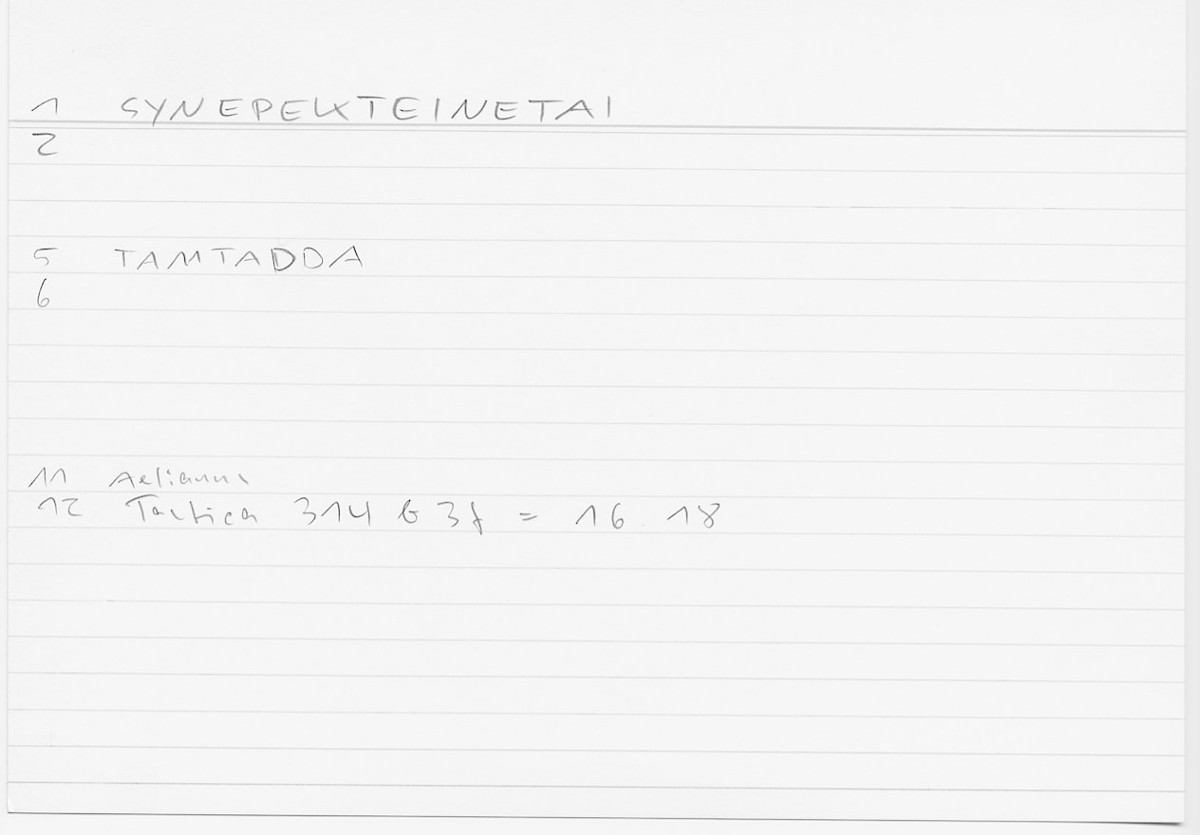 1 SYNEPEKTEINETAI
2
5 TAMTADDA
6
11 Aelianus
12 Tactica 314 b 3f = 16 18